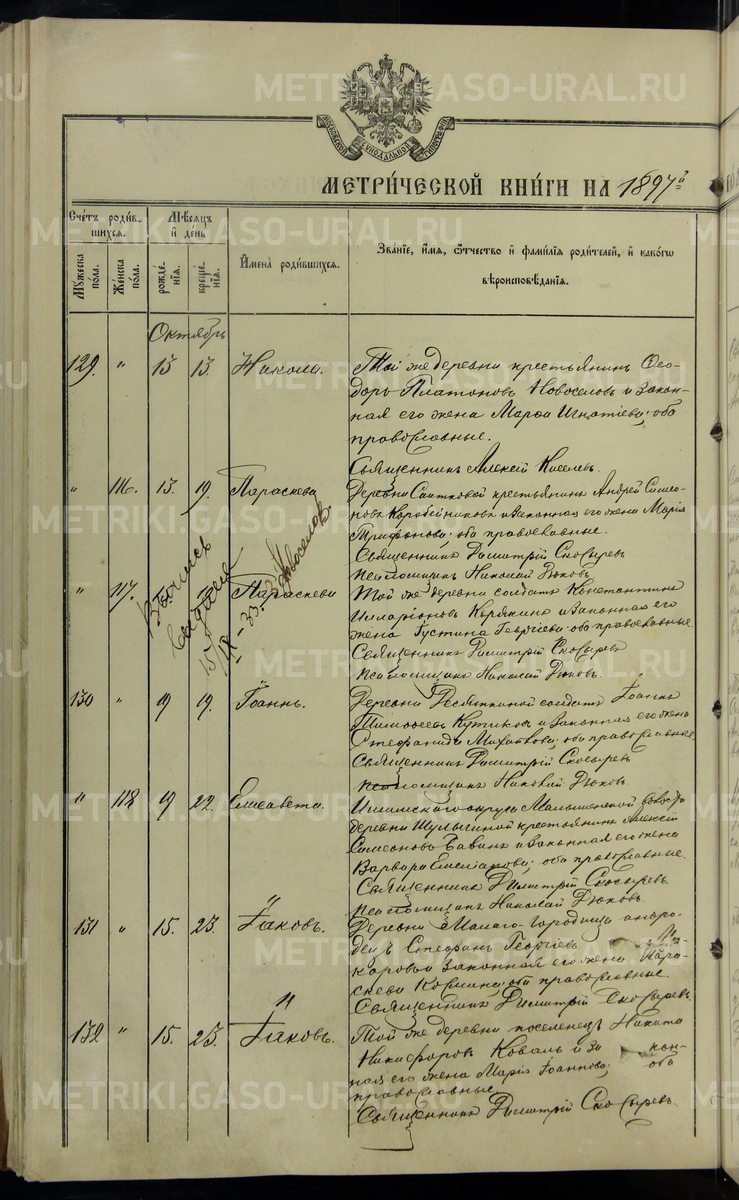 METRIKI.GASO-URAL.RU
МОСКОВСКОЙ СѴНОДАЛЬНОЙ ТИПОГРАФІИ
МЕТРИ́ЧЕСКОЙ КНИ́ГИ НА 1897й
Счетъ роди́вшихся.
Му́жеска по́ла.
Же́нска по́ла.
Мѣ́сяцъ и день
рожде́нїя.
креще́нїя.
И́мена роди́вшихся.
Зва́нїе, и́мя, ѻ́тчество и фами́лїѧ роди́телей, и како́гѡ
вѣроисповѣ́данїѧ.
Октябрь
129. " 15 15. Никола.
Той же деревни крестьянинъ Ѳео-
доръ Платоновъ Новоселовъ и закон-
ная его жена Марѳа Игнатіева; оба
православные.
Священникъ Алексій Киселевъ.
" 116. 15. 19. Параскева
Деревни крестьянинъ Андрей Симео-
новъ Коробейниковъ и законная его жена Марія
Трифонова; оба православные.
Священникъ Димитрій Скосыревъ
Псаломщикъ Николай Дюковъ.
" 117. Параскева
Той же деревни солдатъ Константинъ
Илларіоновъ Корякинъ и законная его
жена Густина Георгіева; оба православные.
Священникъ Димитрій Скосыревъ
Псаломщикъ Николай Дюковъ.
Выпись
выдана
15/IX-33.
Новоселов
130 " 19 19. Іоаннъ.
Деревни солдатъ Іоаннъ
Тимоѳеевъ Кутиковъ и законная его жена
Стефанида Михайлова; оба православные
Священникъ Димитрій Скосыревъ
Псаломщикъ Николай Дюковъ
" 118 19 22. Елисавета.
Ишимскаго округа Малышенской волости
деревни Шулыгиной крестьянинъ Алексій
Симеоновъ Бабинъ и законная его жена
Варвара Емеліанова; оба православные.
Священникъ Димитрій Скосыревъ.
Псаломщикъ Николай Дюковъ.
131 " 15. 23. Іаковъ.
Деревни Малаго-Городища иноро-
децъ Стефанъ Георгіевъ Ма-
каровъ и законная его жена Пара-
скева Козмина; оба православные.
Священникъ Димитрій Скосыревъ.
132 " 15. 23. Іаковъ.
Той же деревни поселенецъ Никита
Никифоровъ Коваль и за кон-
ная его жена Марія Іоаннова; оба
православные
Священникъ Димитрій Скосыревъ.